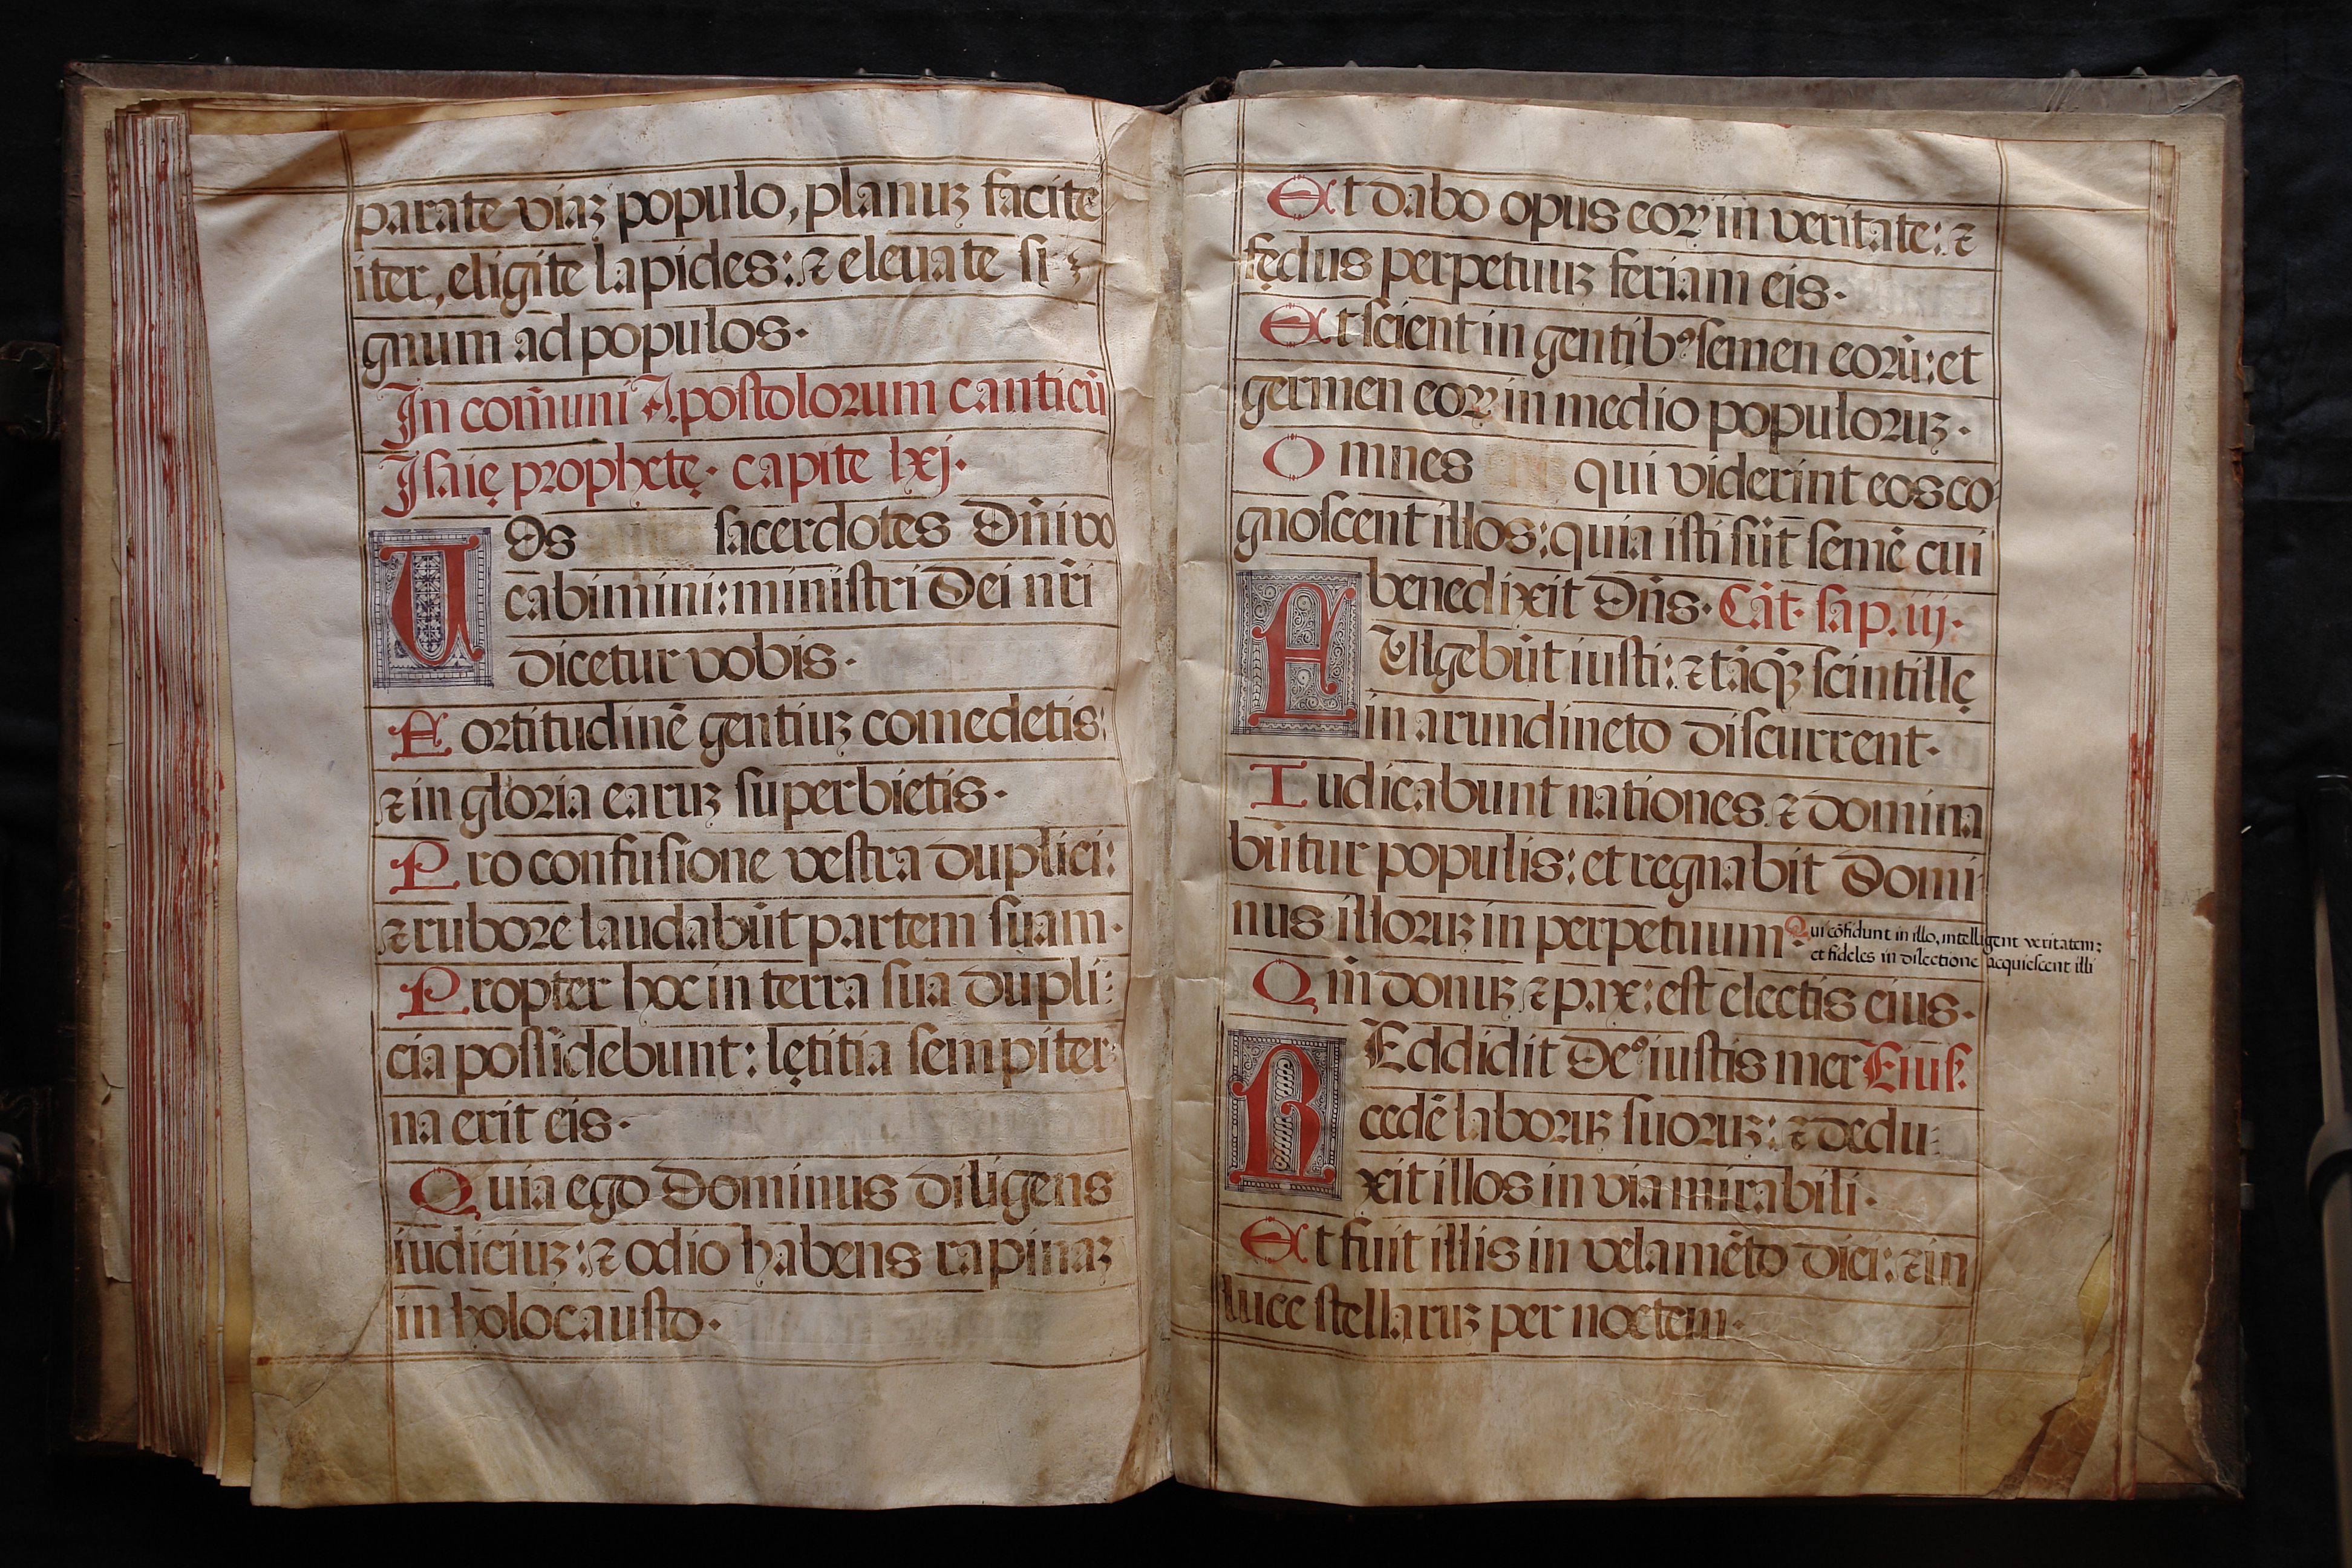 parate viaʒ populo, planuʒ facite
iter, eligite lapides: ⁊ eleuate si
gnum ad populos.
In com̄uni Apostolorum canticū
Isaię prophetę. capite lxj.
UOs sacerdotes Dn̄i vo
cabimini: ministri Dei nr̄i
dicetur vobis.
Fortitudinē gentiuʒ comedetis:
⁊ in gloria earuʒ superbietis.
Pro confusione vestra duplici:
⁊ rubore laudabūt partem suam.
Propter hoc in terra sua dupli
cia possidebunt: lętitia sempiter
na erit eis.
Quia ego Dominus diligens
iudiciuʒ: ⁊ odio habens rapinaʒ
in holocausto.
Et dabo opus eoꝝ in veritate: ⁊
fędus perpetuuʒ feriam eis.
Et scient in gentibꝰ semen eorū: et
germen eoꝝ in medio populoruʒ.
Omnes qui viderint eos co
gnoscent illos: quia isti sūt semē cui
benedixit Dn̄s. Cāt. sap. iij.
FUlgebūt iusti: ⁊ tāꝙʒ scintillę
in arundineto discurrent.
Iudicabunt nationes ⁊ domina
būtur populis: et regnabit Domi
nus illoruʒ in perpetuum.
Qui cōfidunt in illo, intelligent veritatem:
et fideles in dilectione acquiescent illi
Qm̄ donuʒ ⁊ pax: est electis eius.
REddidit Deꝰ iustis mer Eiusd.
cedē laboruʒ suoruʒ: ⁊ dedu
xit illos in via mirabili.
Et fuit illis in velamēto diei: ⁊ in
luce stellaruʒ per noctem.